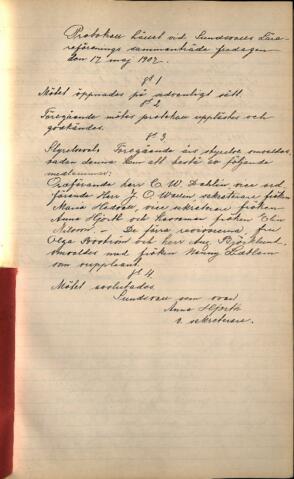 Protokoll hållet vid Sundsvalls Lära-
reförenings sammanträde fredagen
den 17 maj 1907.
§ 1
Mötet öppnades på sedvanligt sätt.
§ 2
Föregående mötes protokoll upplästes och
godkändes.
§ 3
Styrelseval. Föregående års styrelse omvaldes,
sedan denna kom att bestå av följande
medlemmar:
Ordförande herr C. W. Dahlin vice ord-
förande Herr J. O. Weslén sekreterare fröken
Maria Hedvall, vice sekreterare fröken
Anna Hjorth och kassör fröken Elin
Nilsson. - De förra revisorerna, fru
Olga och herr Aug. Björklund,
omvaldes med fröken Nanny
som suppleant.
§ 4
Mötet avslutades.
Sundsvall som ovan
Anna Hjorth
v. sekreterare.